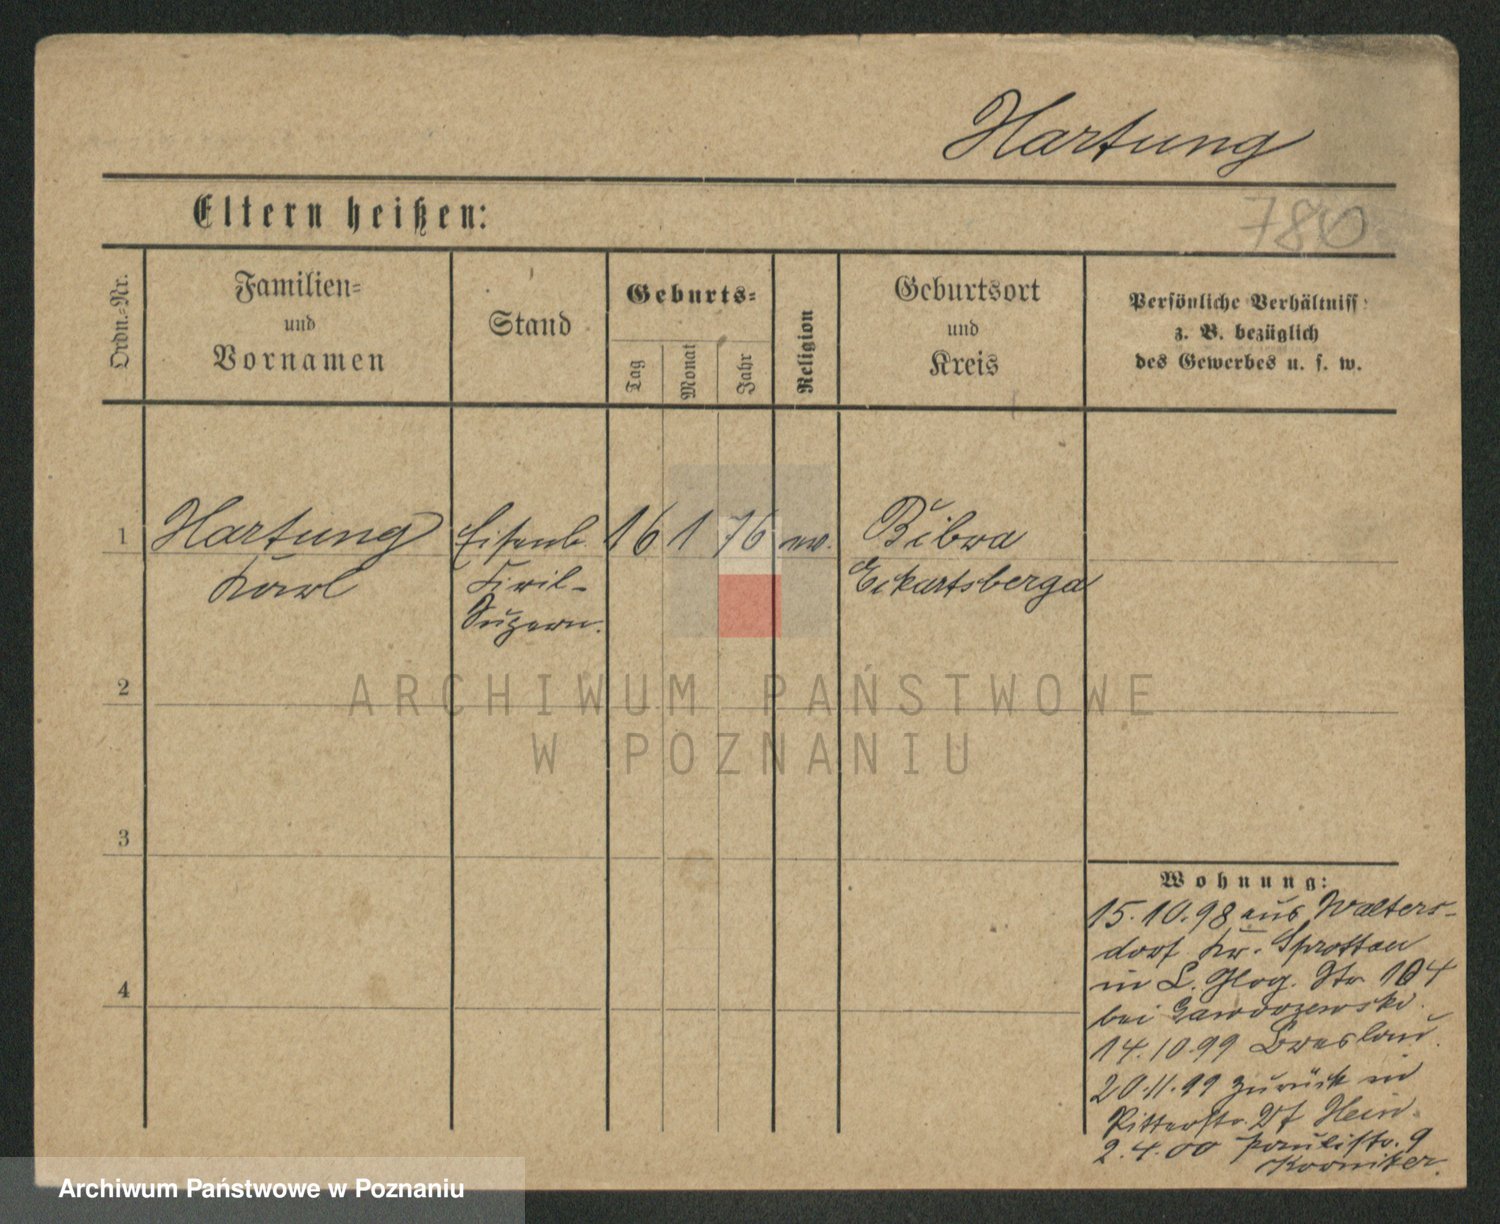 Hartung
780
Eltern heißen:
Ordn.-Nr.
Familien-
und
Vornamen
Stand
Geburts-
Tag
Monat
Jahr
Religion
Geburtsort
und
Kreis
Persönliche Verhältniss
z. B. bezüglich
des Gewerbes u. s. w.
1 Hartung Eisenb. 16 1 76 ev. Bibra
Karl Civil- Eckartsberga
Supern.
2
ARCHIWUM PAŃSTWOWE
W POZNANIU
3
4
Wohnung:
15.10.98 aus Walters-
dorf Kr. Sprottau
in L. Glog. Str 104
bei
14.10.99 Breslau
20.11.99 zurück in
Ritterstr. Hein
2.4.00 Paulistr. 9
Archiwum Państwowe w Poznaniu